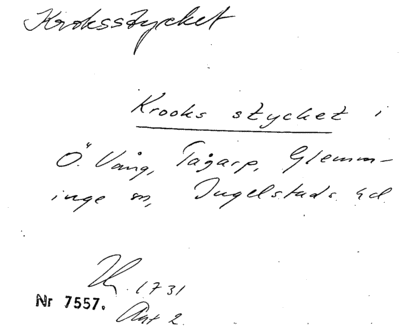 Kroksstycket
Krooks stycket i
Ö. Vång, Tågarp, Glemm-
inge sn, Ingelstads hd
1731
Nr 7557.
Akt 2